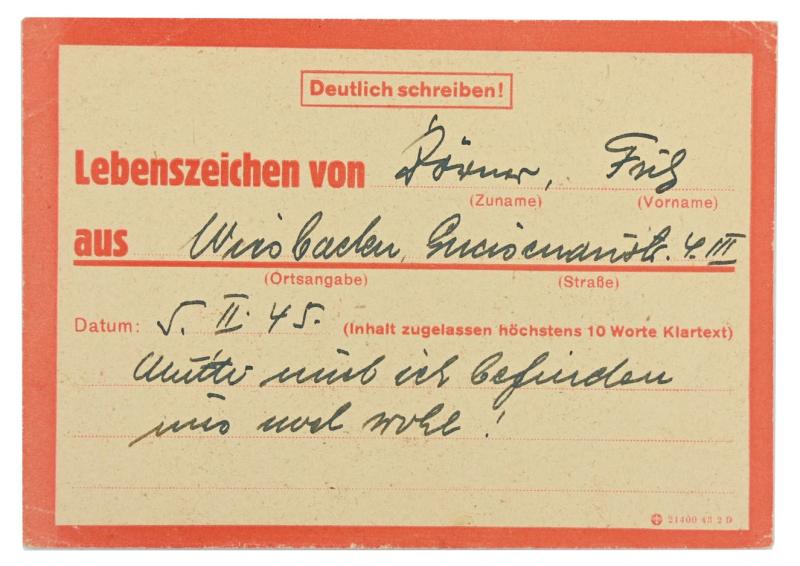 Deutlich schreiben!
Lebenszeichen von Dörner, Fritz
(Zuname) (Vorname)
aus Wiesbaden, Gneisenaustr. 4. III
(Ortsangabe) (Straße)
Datum: 5. II. 45. (Inhalt zugelassen höchstens 10 Worte Klartext)
Mutter und ich befinden
uns noch wohl!
21400 43 2 D